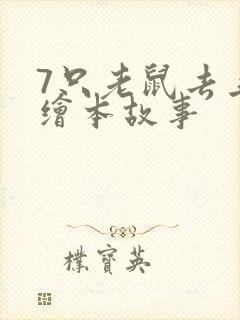 7只老鼠去
繪本故事
樸寶英